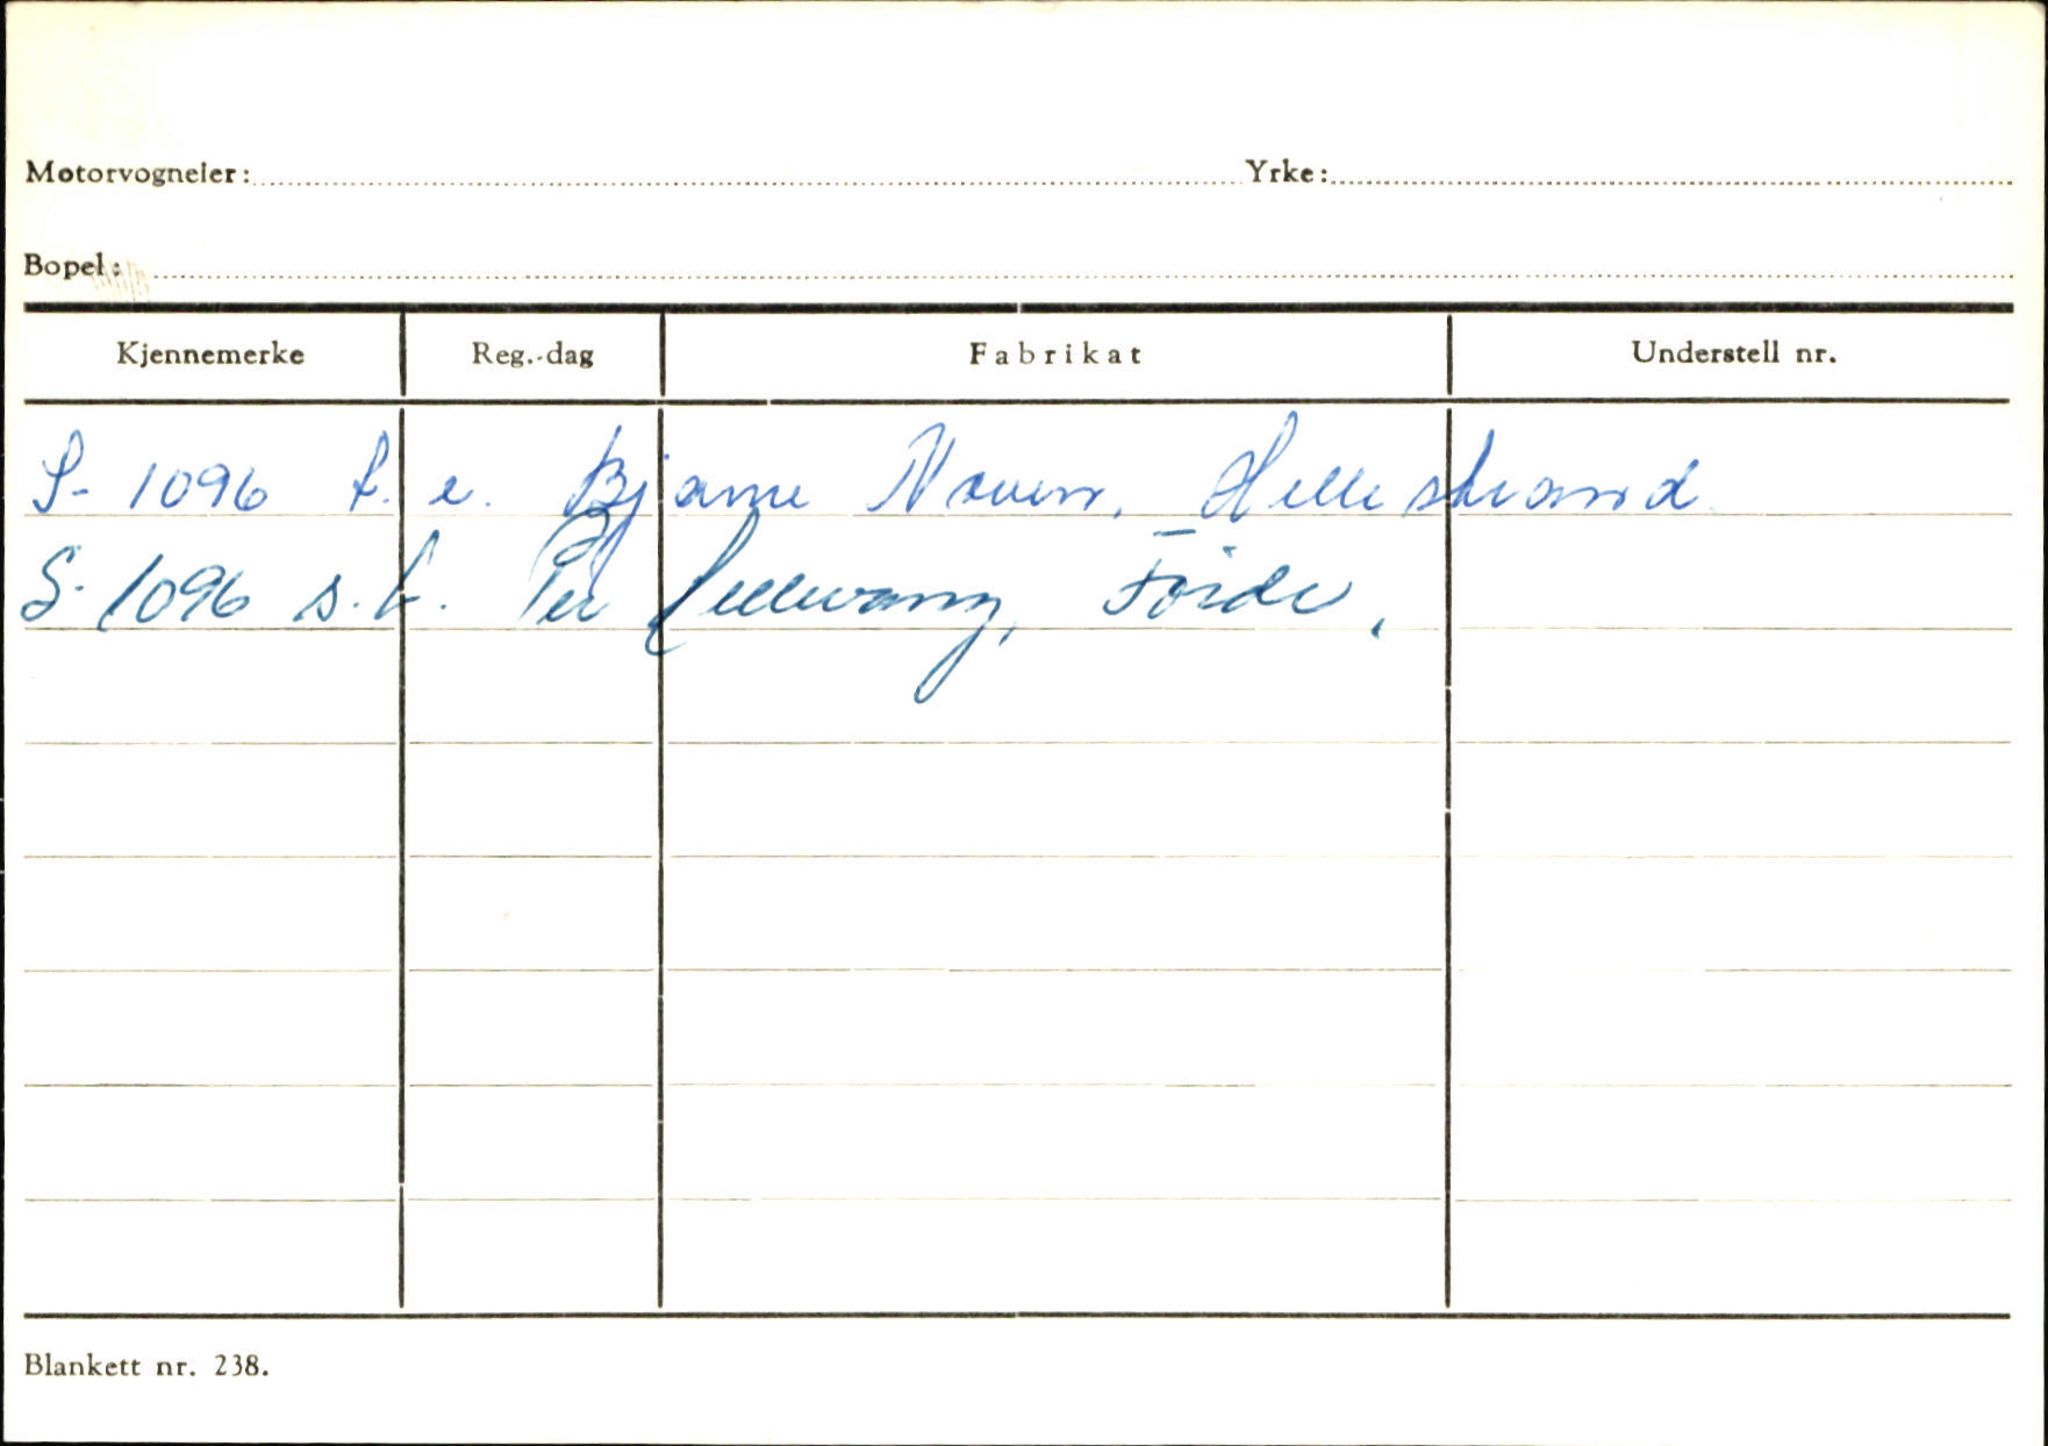 Motorvogneier: Yrke:
Bopel:
Kjennemerke Reg.-dag Fabrikat Understell nr.
S- 1096 t. e. Bjarne Noven, Hellestrand
S- 1096 s. t. Per Hellevang, Förde.
Blankett nr. 238.